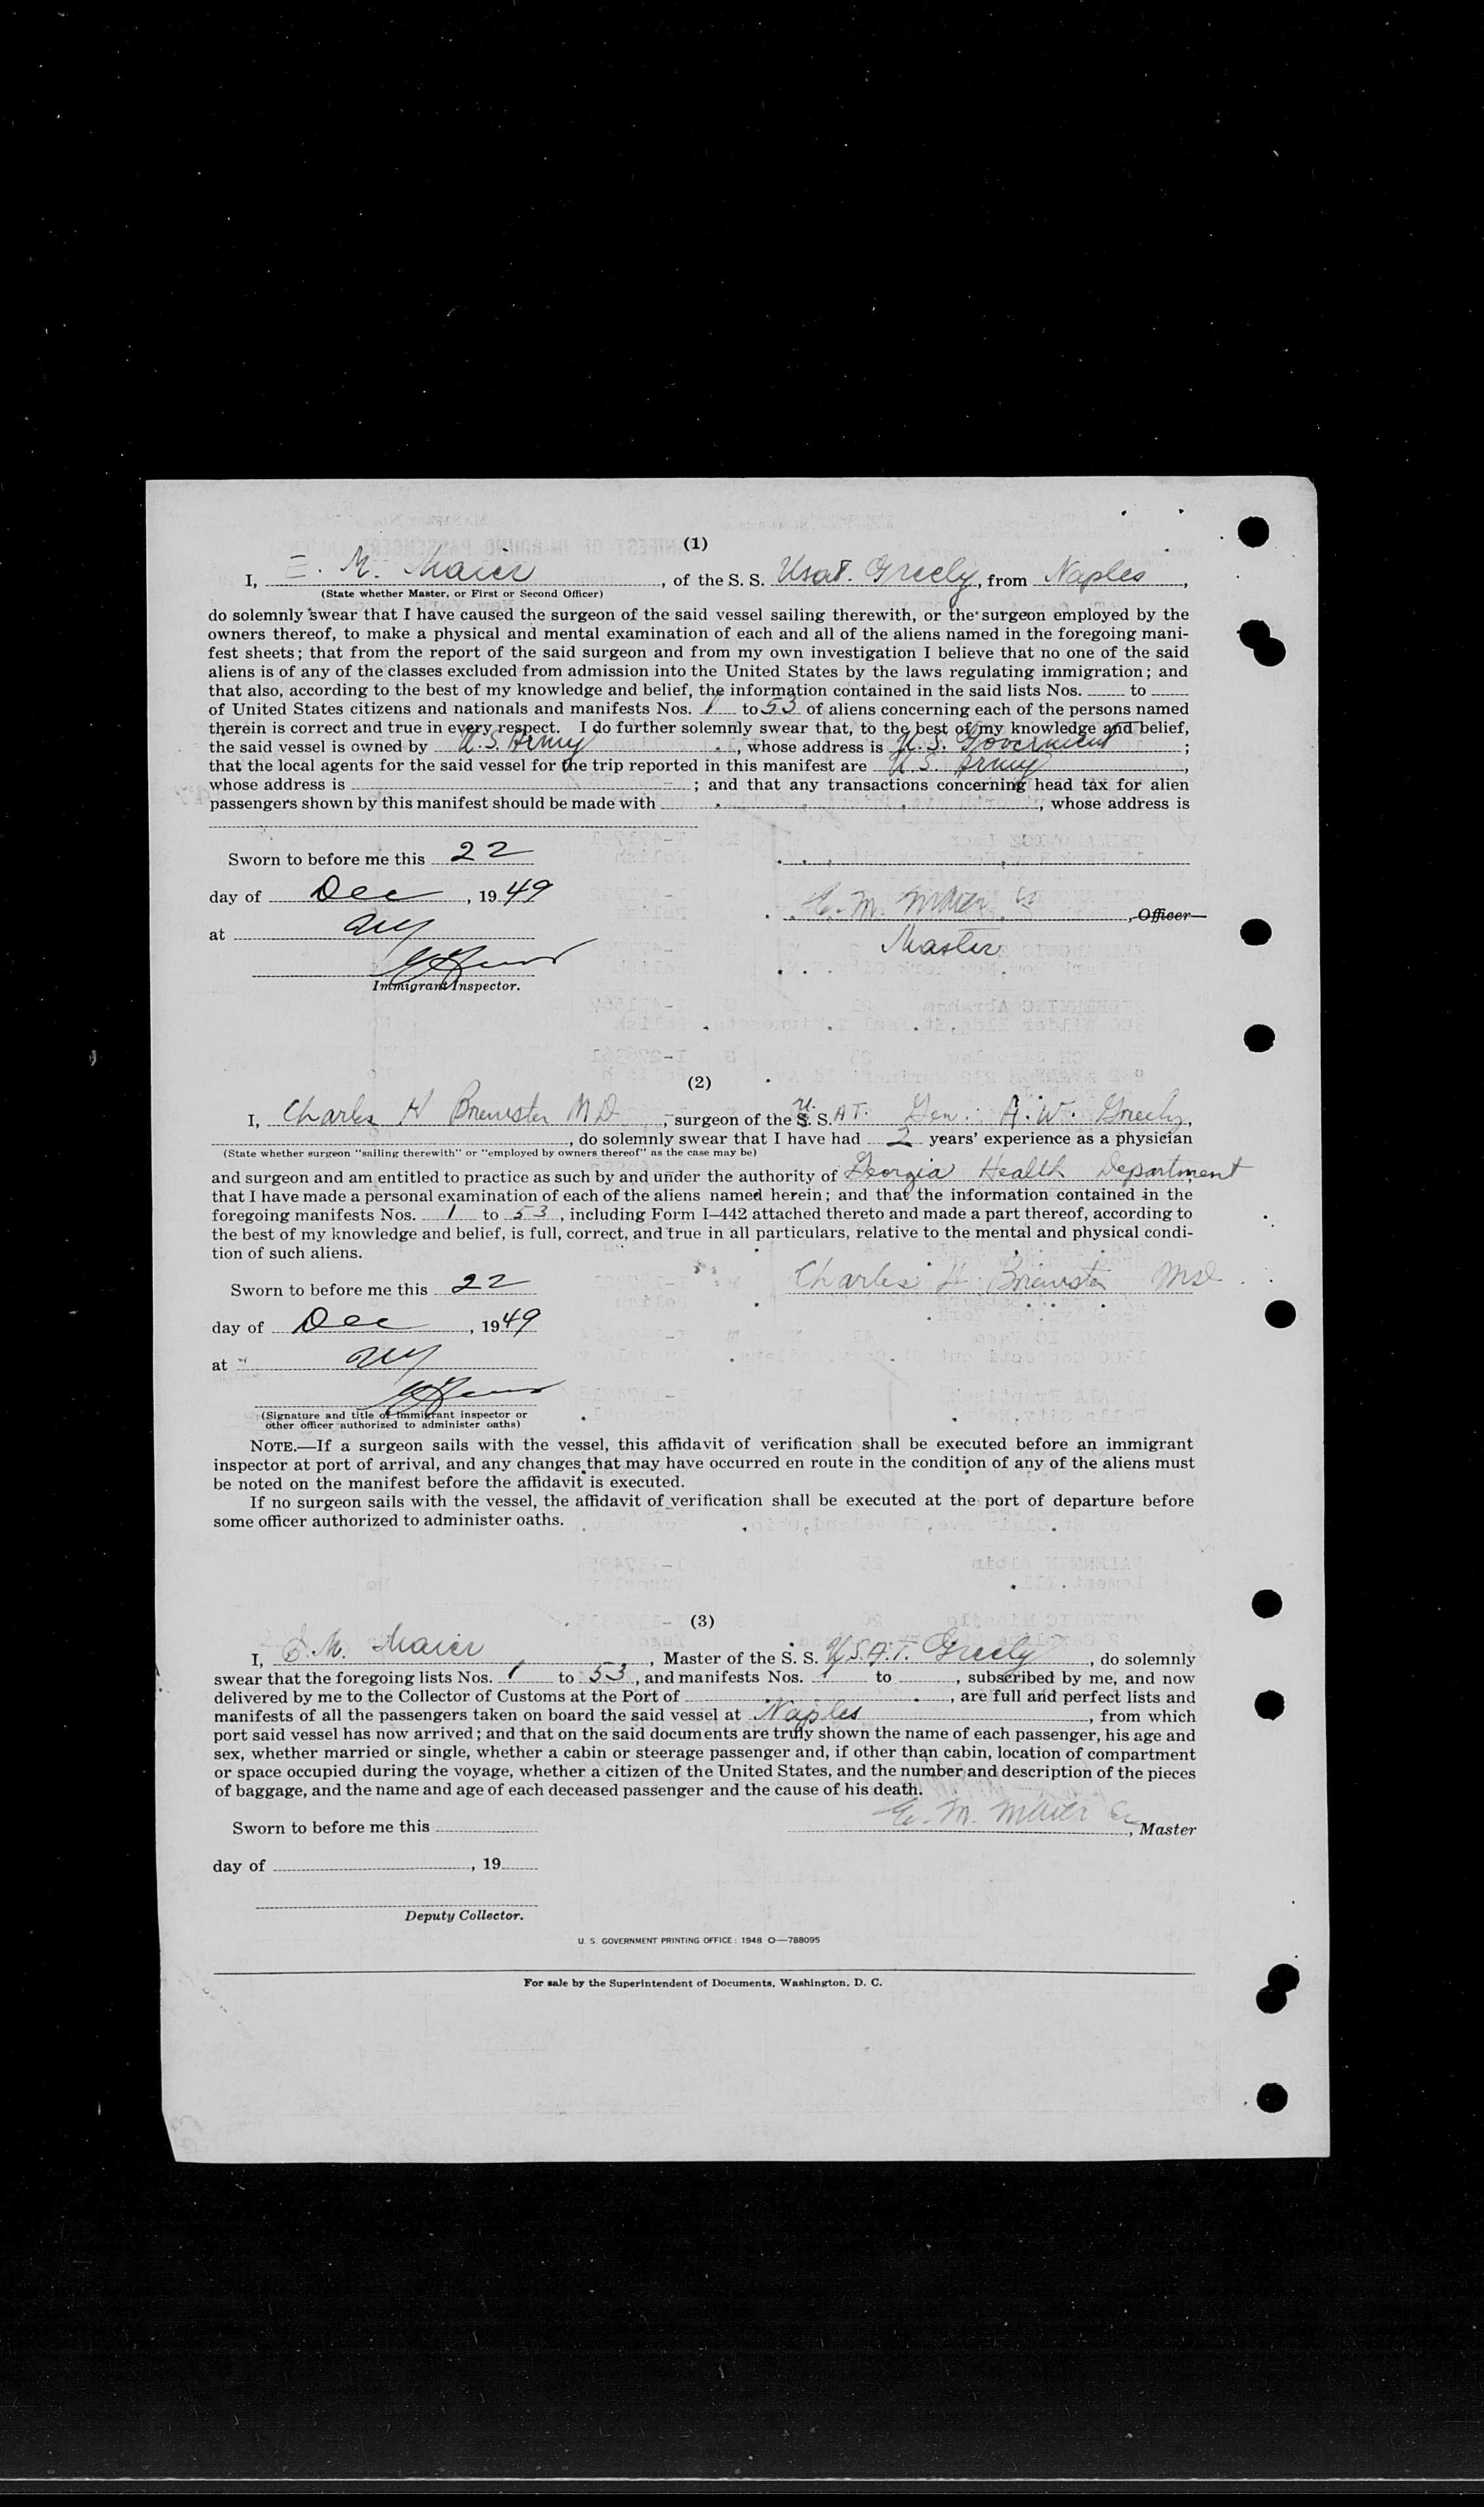 (1)
I, E. M. Maier, of the S. S. Usat. Greely, from Naples,
(State whether Master, or First or Second Officer)
do solemnly swear that I have caused the surgeon of the said vessel sailing therewith, or the surgeon employed by the
owners thereof, to make a physical and mental examination of each and all of the aliens named in the foregoing mani-
fest sheets; that from the report of the said surgeon and from my own investigation I believe that no one of the said
aliens is of any of the classes excluded from admission into the United States by the laws regulating immigration; and
that also, according to the best of my knowledge and belief, the information contained in the said lists Nos. to
of United States citizens and nationals and manifests Nos. 1 to 53 of aliens concerning each of the persons named
therein is correct and true in every respect. I do further solemnly swear that, to the best of my knowledge and belief,
the said vessel is owned by U.S. Army, whose address is U. S. Government;
that the local agents for the said vessel for the trip reported in this manifest are U.S. Army,
whose address is ; and that any transactions concerning head tax for alien
passengers shown by this manifest should be made with , whose address is
Sworn to before me this 22
day of Dec, 1949
E. M. Maier, Officer
at NY
Master
Immigrant Inspector.
(2)
I, Charles H Brewster MD, surgeon of the U. S. AT. Gen. A. W. Greely,
, do solemnly swear that I have had 2 years' experience as a physician
(State whether surgeon "sailing therewith" or "employed by owners thereof" as the case may be)
and surgeon and am entitled to practice as such by and under the authority of Georgia Health Department;
that I have made a personal examination of each of the aliens named herein; and that the information contained in the
foregoing manifests Nos. 1 to 53, including Form I–442 attached thereto and made a part thereof, according to
the best of my knowledge and belief, is full, correct, and true in all particulars, relative to the mental and physical condi-
tion of such aliens.
Sworn to before me this 22
Charles H Brewster MD
day of Dec, 1949
at NY
(Signature and title of immigrant inspector or
other officer authorized to administer oaths)
NOTE.—If a surgeon sails with the vessel, this affidavit of verification shall be executed before an immigrant
inspector at port of arrival, and any changes that may have occurred en route in the condition of any of the aliens must
be noted on the manifest before the affidavit is executed.
If no surgeon sails with the vessel, the affidavit of verification shall be executed at the port of departure before
some officer authorized to administer oaths.
(3)
I, E. M. Maier, Master of the S. S. U.S.A.T. Greely, do solemnly
swear that the foregoing lists Nos. 1 to 53, and manifests Nos. 1 to , subscribed by me, and now
delivered by me to the Collector of Customs at the Port of , are full and perfect lists and
manifests of all the passengers taken on board the said vessel at Naples, from which
port said vessel has now arrived; and that on the said documents are truly shown the name of each passenger, his age and
sex, whether married or single, whether a cabin or steerage passenger and, if other than cabin, location of compartment
or space occupied during the voyage, whether a citizen of the United States, and the number and description of the pieces
of baggage, and the name and age of each deceased passenger and the cause of his death.
Sworn to before me this
E. M. Maier, Master
day of , 19
Deputy Collector.
U. S. GOVERNMENT PRINTING OFFICE: 1948 O—788095
For sale by the Superintendent of Documents, Washington, D. C.